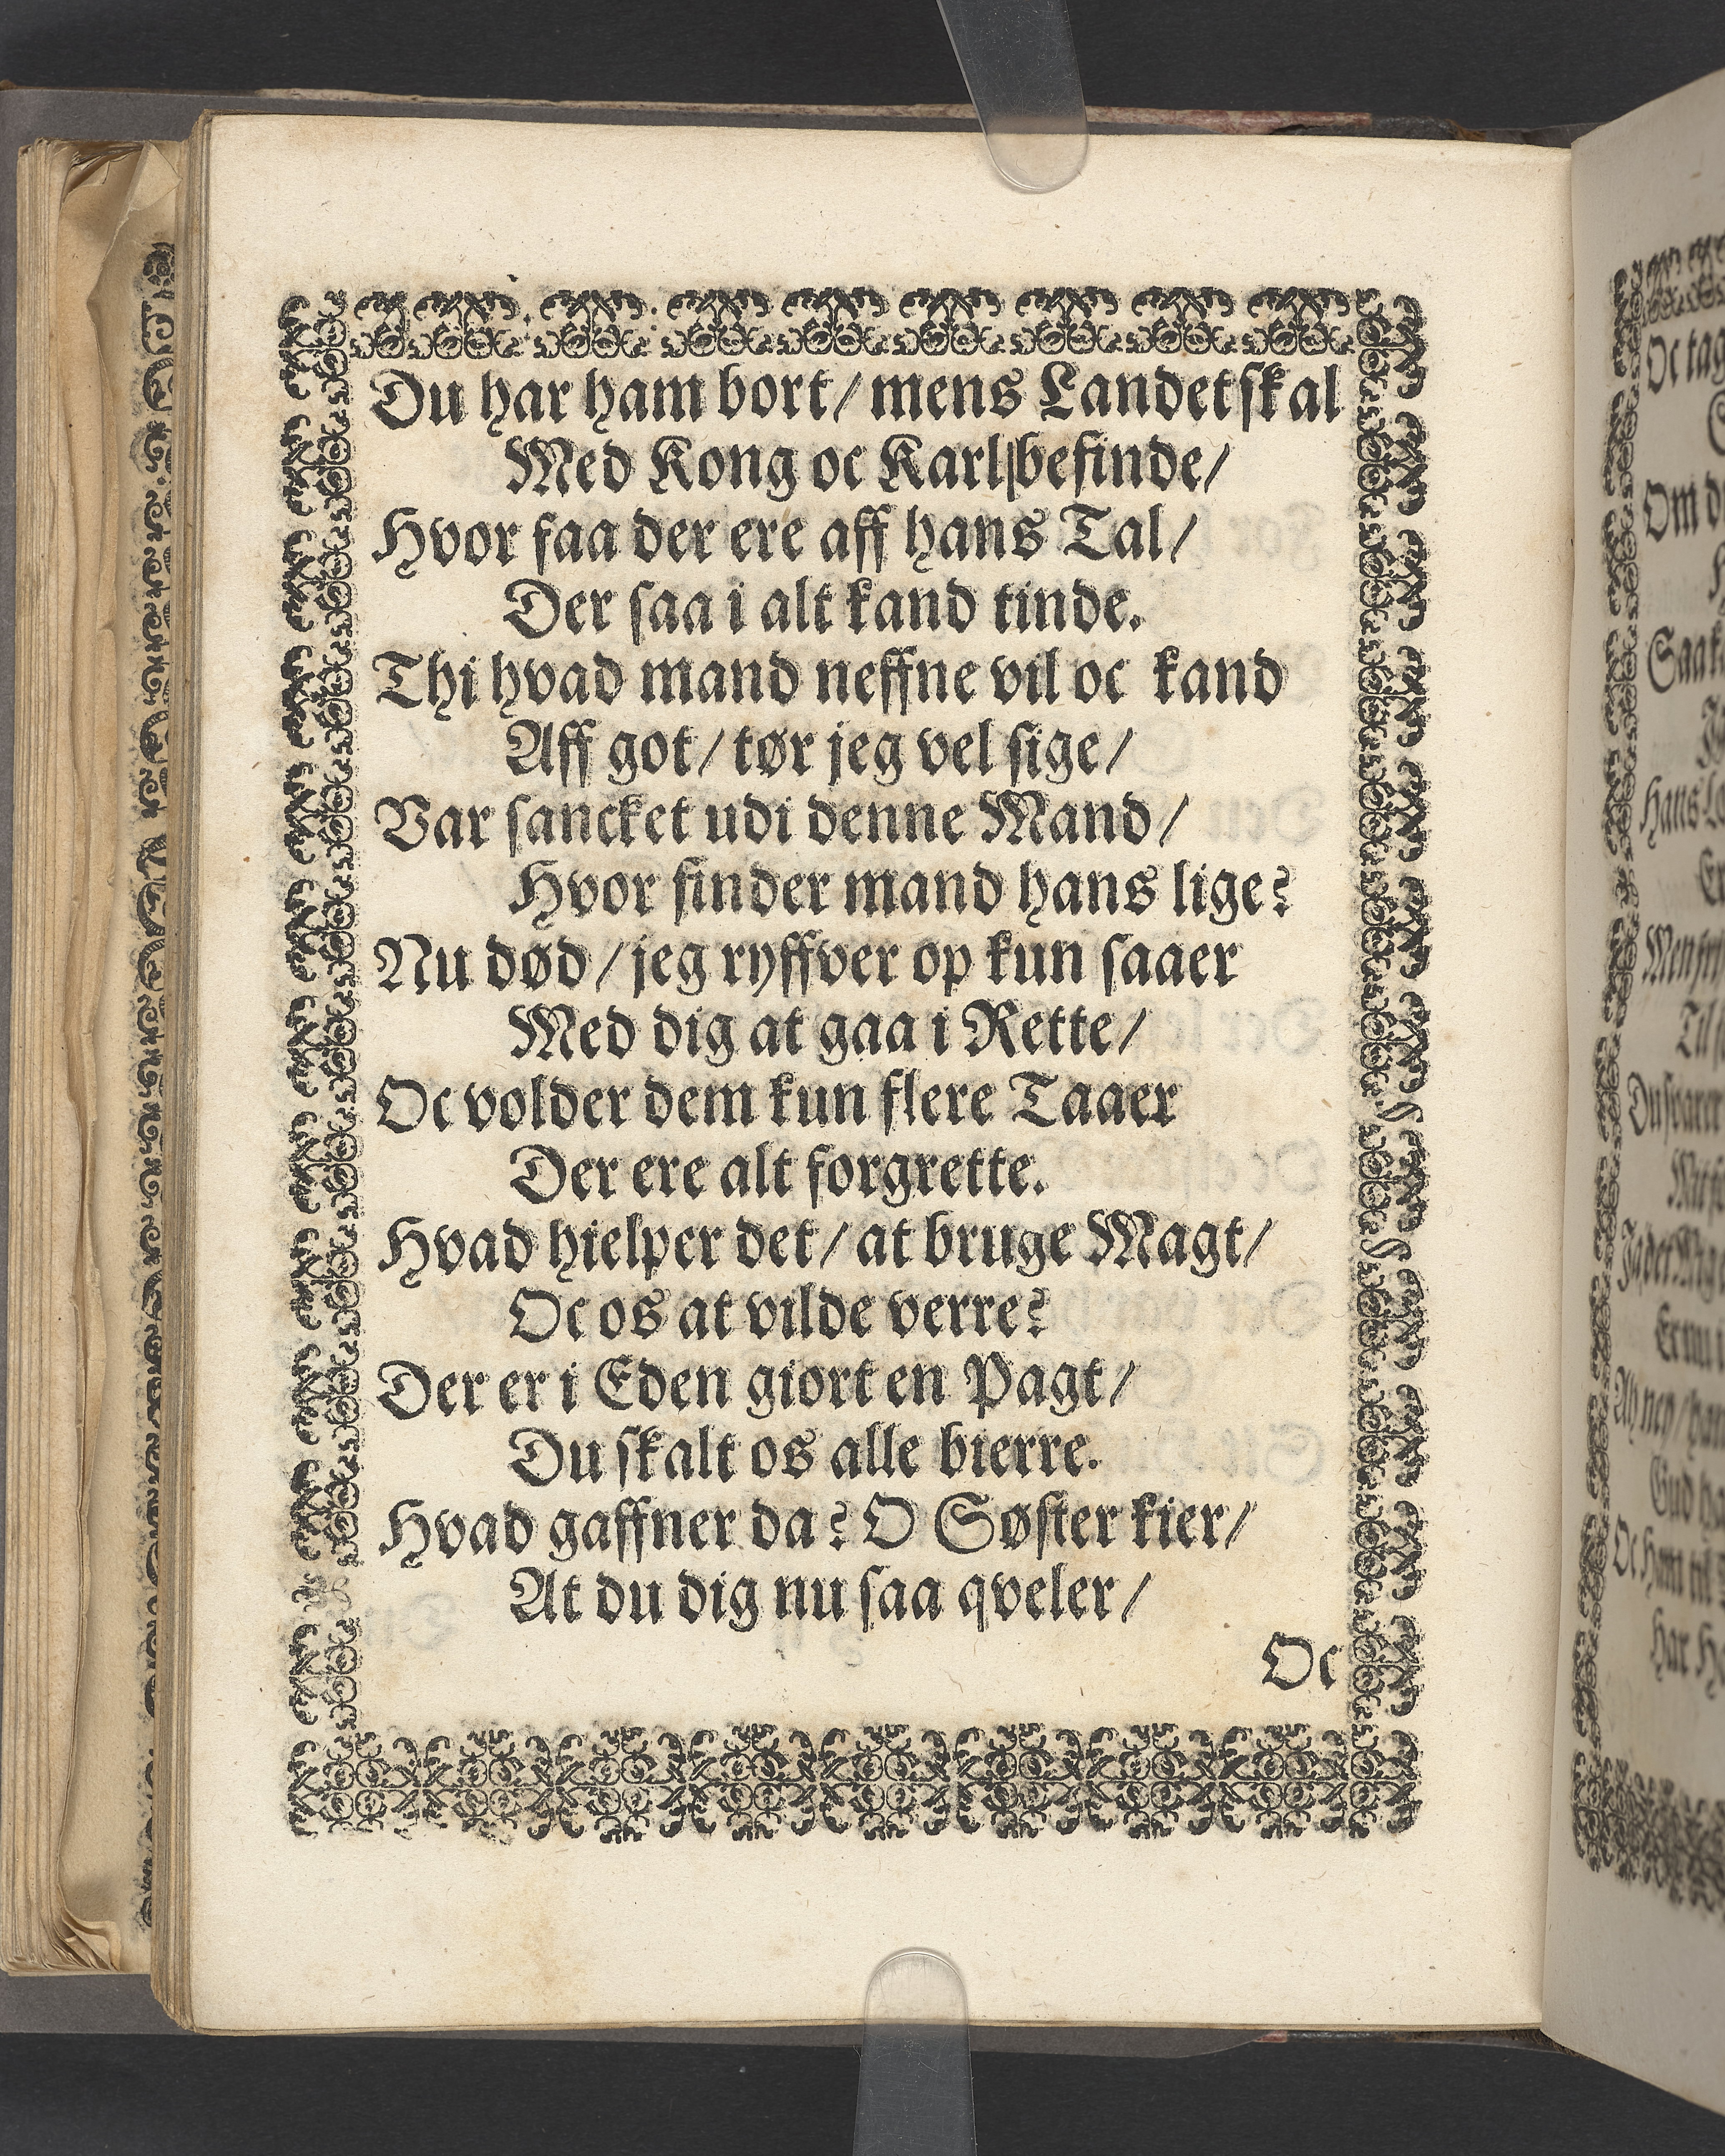 Du har ham bort / mens Landet skal
Med Kong oc Karl befinde /
Hvor faa der ere aff hans Tal /
Der saa i alt kand tinde.
Thi hvad mand neffne vil oc kand
Aff got / tør jeg vel sige /
Var sancket udi denne Mand /
Hvor finder mand hans lige?
Nu død / jeg ryffver op kun saaer
Med dig at gaa i Rette /
Oc volder dem kun flere Taaer
Der ere alt forgrette.
Hvad hielper det / at bruge Magt /
Oc os at vilde verre?
Der er i Eden giort en Pagt /
Du skalt os alle bierre.
Hvad gaffner da? O Søster kier /
At du dig nu saa qveler /
Oc